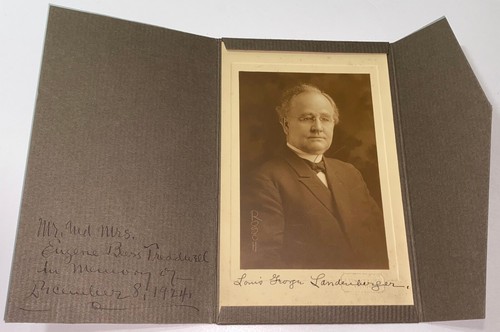 Mr. and Mrs.
Eugene
in Memory of
December 8, 1924.
Louis George Landenberger.